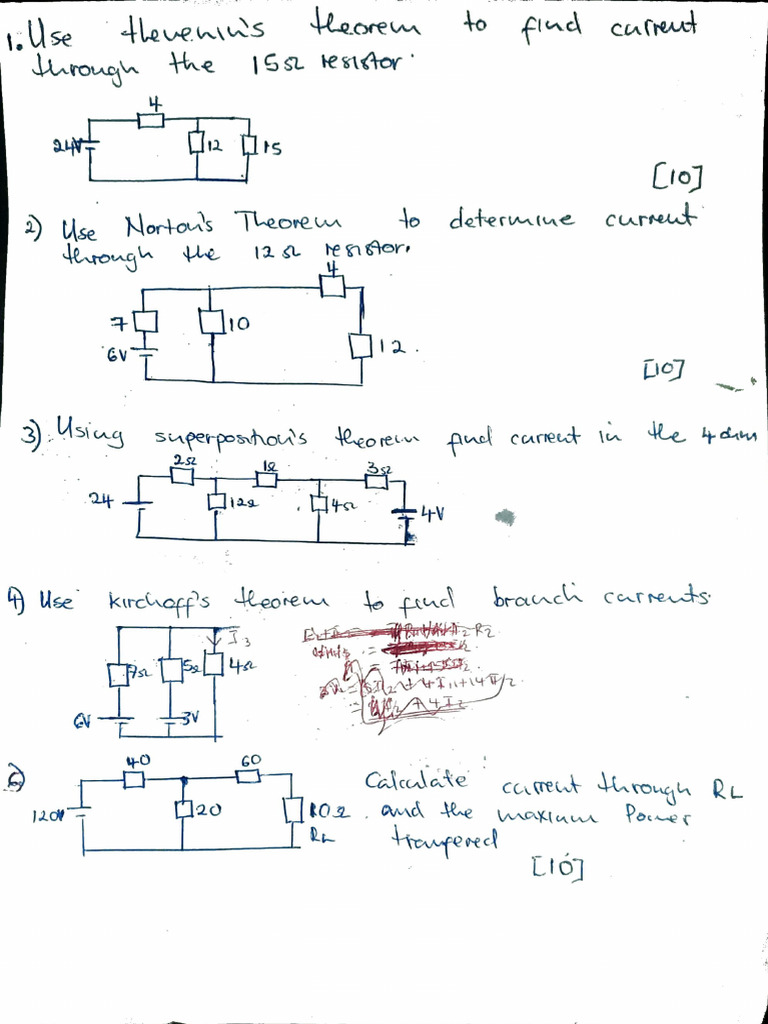 1. Use thevenin's theorem to find current
through the 15Ω resistor.
4
24V
12
15
[10]
2) Use Norton's Theorem to determine current
through the 12Ω resistor.
4
7
10
6V
12.
[10]
3) Using superposition's theorem find current in the 4 ohm
2Ω 1Ω 3Ω
24
12Ω
4Ω
4V
4) Use Kirchoff's theorem to find branch currents.
I3
7Ω 5Ω 4Ω
6V 3V
6)
40 60
120V
20
10Ω
RL
Calculate current through RL
and the maximum Power
tranfered
[10]